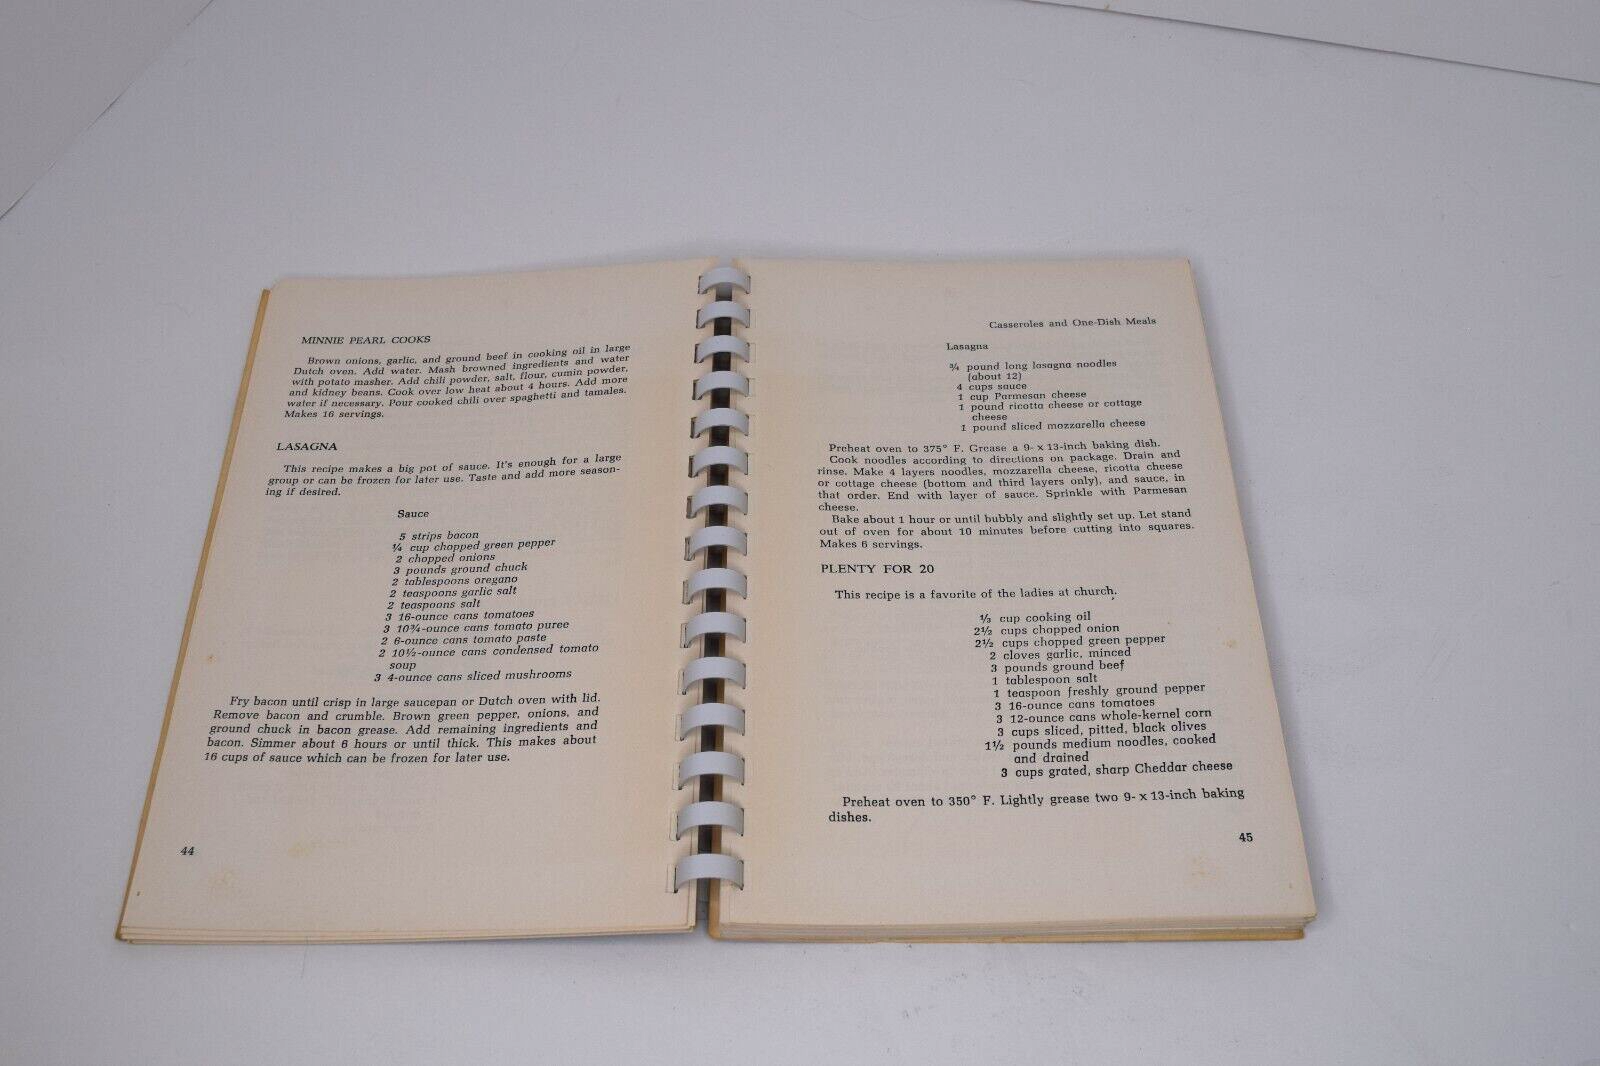 MINNIE PEARL COOKS
Brown onions, garlic, and ground beef in cooking oil in large
Dutch oven. Add water. Mash browned ingredients and water
with potato masher. Add chili powder, salt, flour, cumin powder,
and kidney beans. Cook over low heat about 4 hours. Add more
water if necessary. Pour cooked chili over spaghetti and tamales.
Makes 16 servings.
LASAGNA
This recipe makes a big pot of sauce. It's enough for a large
group or can be frozen for later use. Taste and add more season-
ing if desired.
Sauce
5 strips bacon
¼ cup chopped green pepper
2 chopped onions
3 pounds ground chuck
2 tablespoons oregano
2 teaspoons garlic salt
2 teaspoons salt
3 16-ounce cans tomatoes
3 10¾-ounce cans tomato puree
2 6-ounce cans tomato paste
2 10½-ounce cans condensed tomato
soup
3 4-ounce cans sliced mushrooms
Fry bacon until crisp in large saucepan or Dutch oven with lid.
Remove bacon and crumble. Brown green pepper, onions, and
ground chuck in bacon grease. Add remaining ingredients and
bacon. Simmer about 6 hours or until thick. This makes about
16 cups of sauce which can be frozen for later use.
44
Casseroles and One-Dish Meals
Lasagna
¾ pound long lasagna noodles
(about 12)
4 cups sauce
1 cup Parmesan cheese
1 pound ricotta cheese or cottage
cheese
1 pound sliced mozzarella cheese
Preheat oven to 375° F. Grease a 9- x 13-inch baking dish.
Cook noodles according to directions on package. Drain and
rinse. Make 4 layers noodles, mozzarella cheese, ricotta cheese
or cottage cheese (bottom and third layers only), and sauce, in
that order. End with layer of sauce. Sprinkle with Parmesan
cheese.
Bake about 1 hour or until bubbly and slightly set up. Let stand
out of oven for about 10 minutes before cutting into squares.
Makes 6 servings.
PLENTY FOR 20
This recipe is a favorite of the ladies at church.
⅓ cup cooking oil
2½ cups chopped onion
2½ cups chopped green pepper
2 cloves garlic, minced
3 pounds ground beef
1 tablespoon salt
1 teaspoon freshly ground pepper
3 16-ounce cans tomatoes
3 12-ounce cans whole-kernel corn
3 cups sliced, pitted, black olives
1½ pounds medium noodles, cooked
and drained
3 cups grated, sharp Cheddar cheese
Preheat oven to 350° F. Lightly grease two 9- x 13-inch baking
dishes.
45